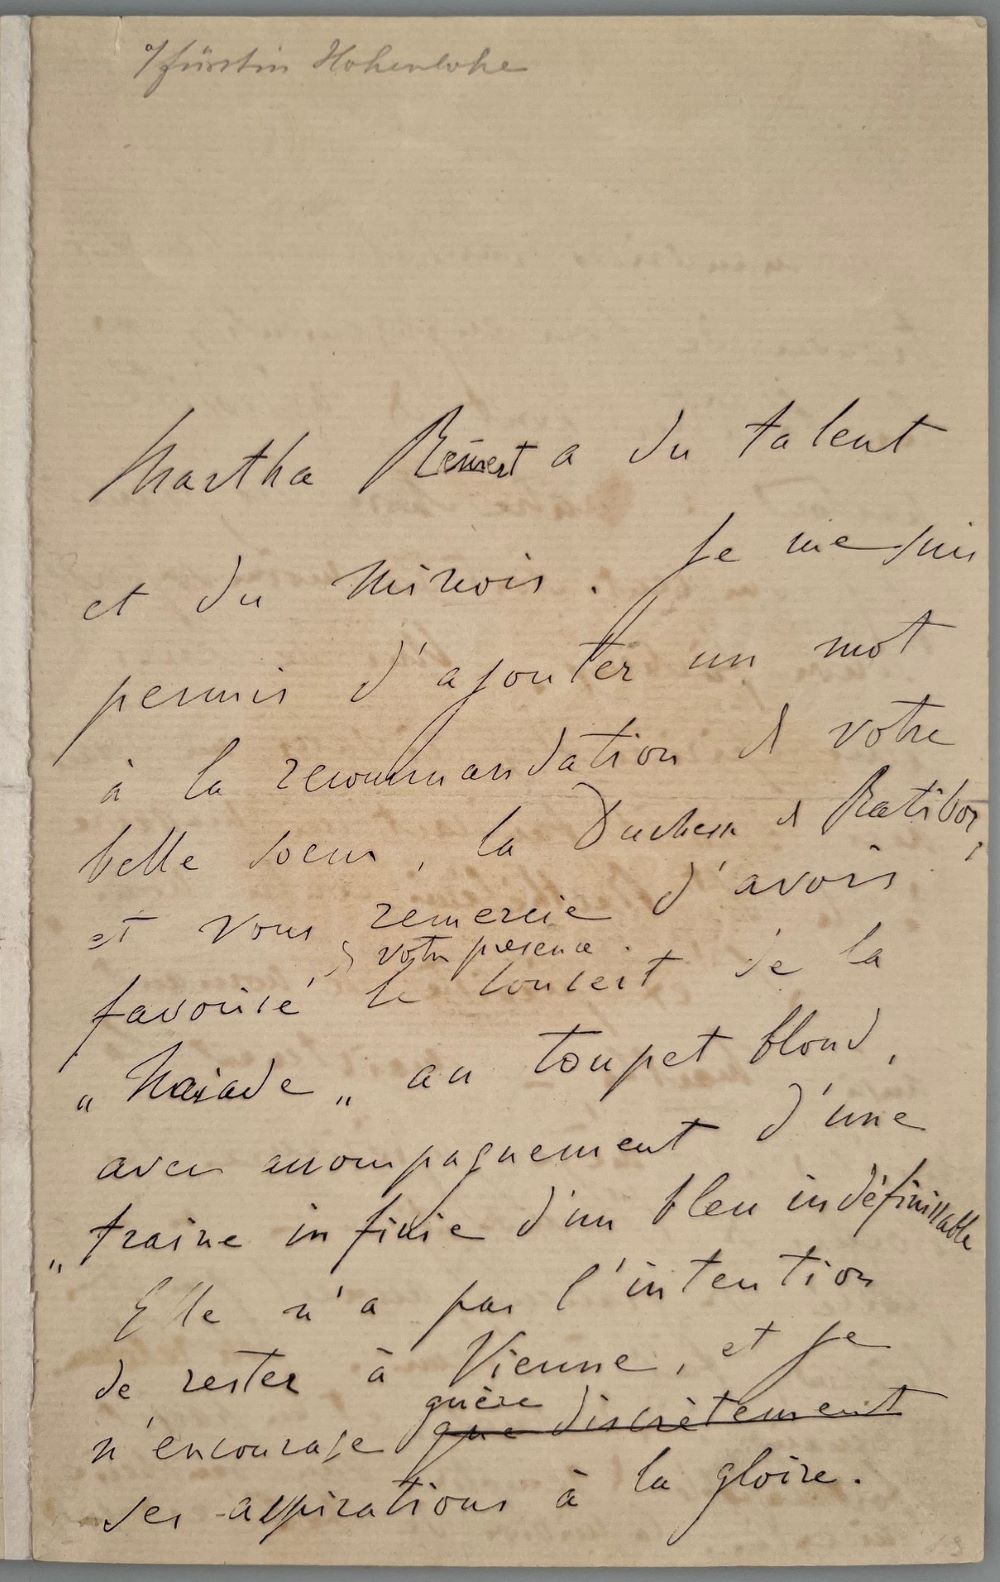 a/ Fürstin Hohenlohe
Martha Rémert a du talent
et du minois. Je me suis
permis d'ajouter un mot
à la recommandation de votre
belle soeur, la Duchesse de Ratibor,
et vous remercie d'avoir
de votre presence
favorisé le concert de la
„Naiade„ au toupet blond,
avec accompagnement d'une
„traine infinie d'un bleu indéfinissable
Elle n'a pas l'intention
de rester à Vienne, et je
guère
n'encourage que discrètement
ses aspirations à la gloire.